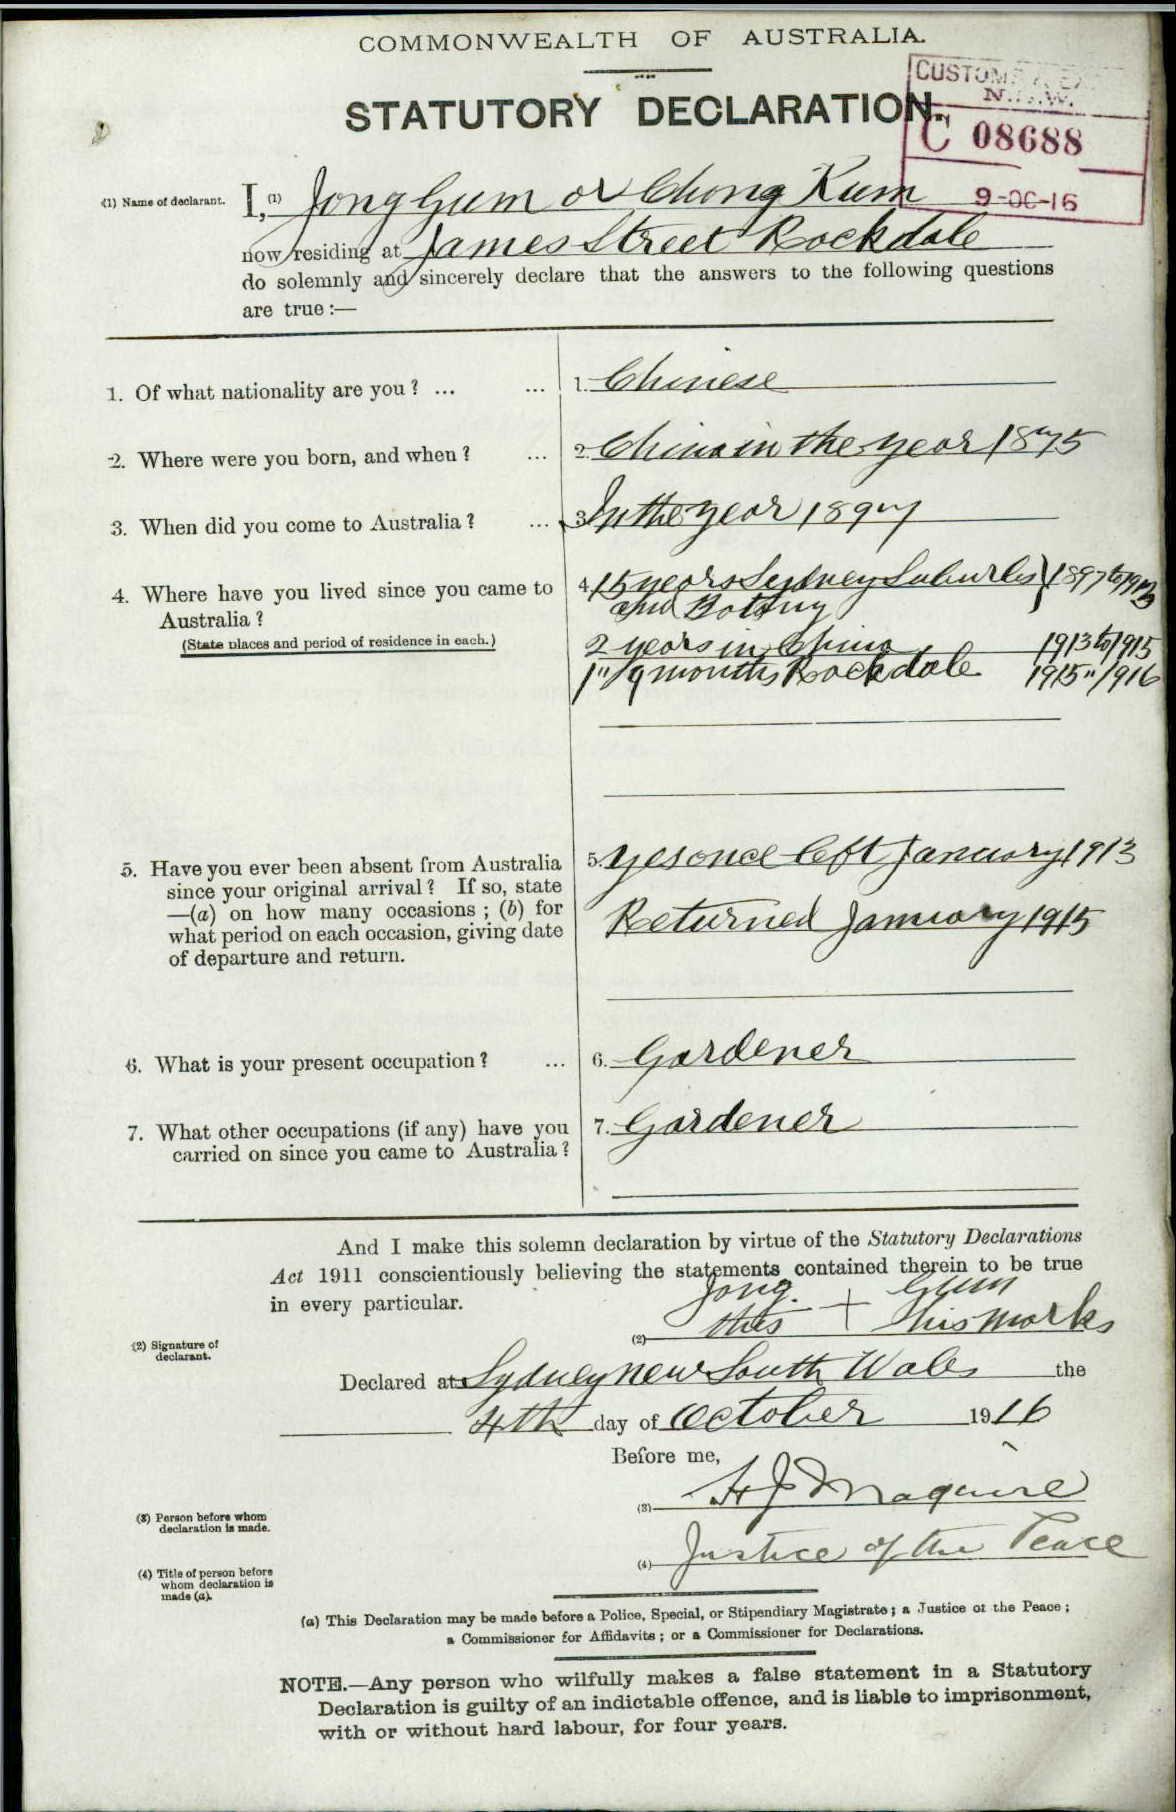 COMMONWEALTH OF AUSTRALIA.
STATUTORY DECLARATION.
CUSTOMS & EX
N.S.W.
C 08688
9-OC-16
(1) Name of declarant. I, (1) Jong Gum or Chong Kum
now residing at James Street Rockdale
do solemnly and sincerely declare that the answers to the following questions
are true :—
1. Of what nationality are you ? ... ... 1. Chinese
2. Where were you born, and when ? ... 2. China in the year 1875
3. When did you come to Australia ? ... 3. In the year 1897
4. Where have you lived since you came to 4. 15 years Sydney Suburbs } 1897 to 1913
Australia ? and Botany
(State places and period of residence in each.) 2 years in China 1913 to 1915
1 " 9 months Rockdale 1915 " 1916
5. Have you ever been absent from Australia 5. yes once left January 1913
since your original arrival ? If so, state
—(a) on how many occasions ; (b) for Returned January 1915
what period on each occasion, giving date
of departure and return.
6. What is your present occupation ? ... 6. Gardener
7. What other occupations (if any) have you 7. Gardener
carried on since you came to Australia ?
And I make this solemn declaration by virtue of the Statutory Declarations
Act 1911 conscientiously believing the statements contained therein to be true
in every particular.
Jong. Gum
(2) Signature of declarant. (2) this + his marks
Declared at Sydney new South Wales the
4th day of October 1916
Before me,
(3) Person before whom declaration is made. (3) H J Maguire
(4) Title of person before whom declaration is made (a). (4) Justice of the Peace
(a) This Declaration may be made before a Police, Special, or Stipendiary Magistrate ; a Justice of the Peace ;
a Commissioner for Affidavits ; or a Commissioner for Declarations.
NOTE.—Any person who wilfully makes a false statement in a Statutory
Declaration is guilty of an indictable offence, and is liable to imprisonment,
with or without hard labour, for four years.